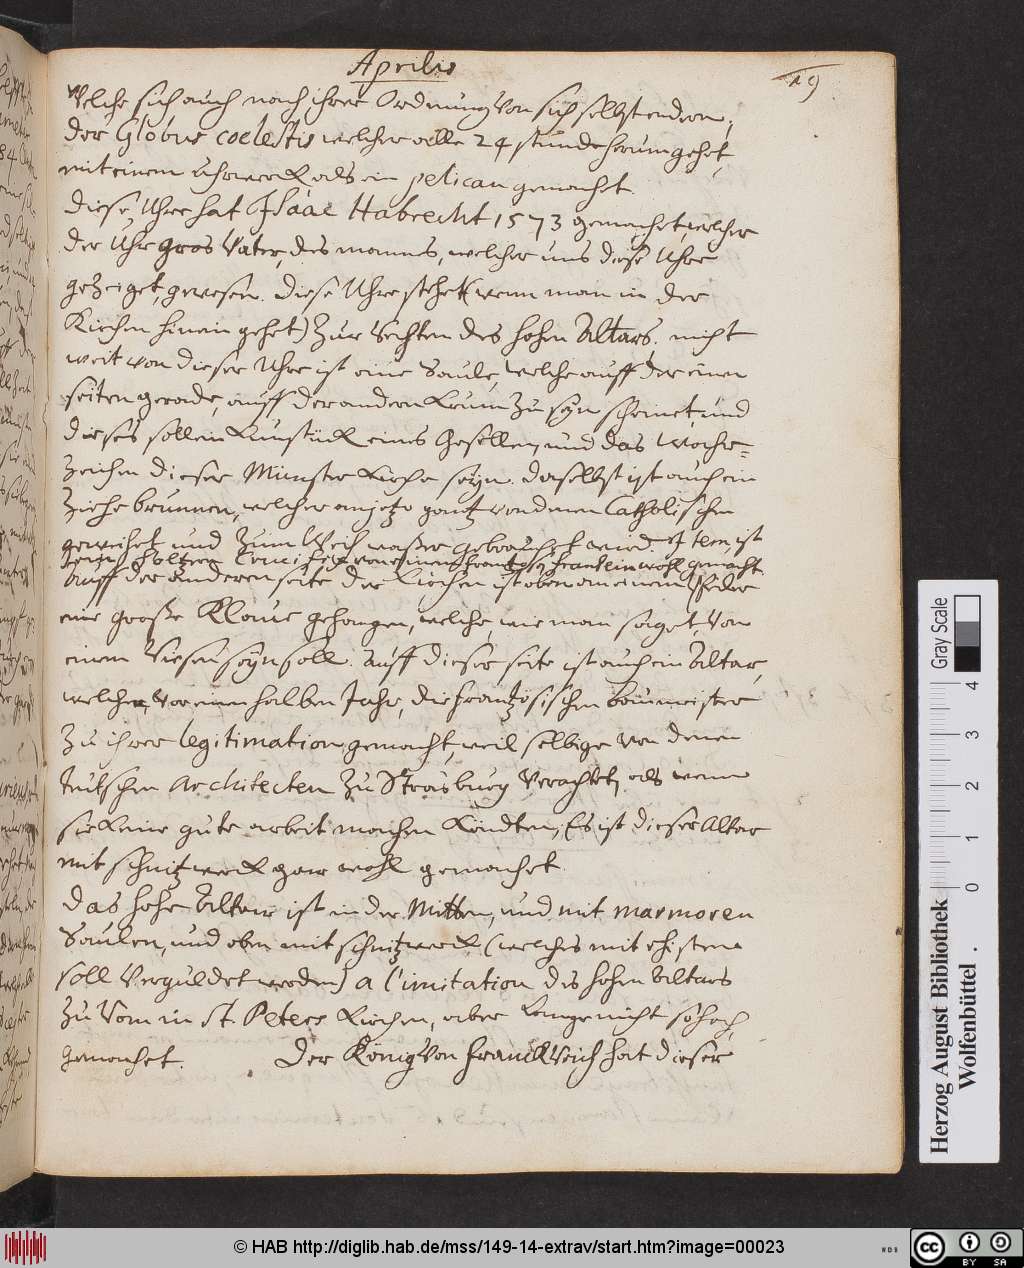 Aprilis
19
Welche sich auch nach ihrer Ordnung von sich selbst endern,
der Globus coelestis welcher alle 24 stunde herum gehet,
mit einem Uhrwerck als ein pelican gemachet.
Diese Uhr hat Isaac Habrecht 1573 gemachet, welcher
der Uhr gros Vater, des mannes, welcher uns diese Uhre
gezeiget, gewesen. Diese Uhre stehet (wenn man in der
Kirchen hinein gehet) zur Rechten des hohen Altars. nicht
weit von dieser Uhr ist eine Saule, welche auff der einen
seiten gerade, auff der andern krum zu seyn scheinet, und
dieses soll ein kunstück eines Gesellen, und das Wahr=
zeichen dieser Münster Kirche seyn. daselbst ist auch ein
Ziehe brunnen, welcher anjetzo gantz von denen Catholischen
geweihet und zum Weih waßer gebrauchet wird. Item, ist
ein höltzern Crucifix von einem frantzösch wohl gemacht.
Auff der anderen seite der Kirchen ist oben an einem Pfeiler
eine große Klaue gehangen, welche, wie man saget, von
einem Riesen seyn soll. Auff dieser seite ist auch ein Altar,
welchen, vor einem halben Jahr, die frantzösischen baumeister
zu ihrer legitimation gemacht, weil selbige von denen
teutschen Architecten zu Strasburg verachtet, als wenn
sie keine gute arbeit machen köndten, Es ist dieser Altar
mit schnitzwerck gar wohl gemachet.
Das hohe Altar ist in der Mitten, und mit marmoren
Saulen, und oben mit schnitzwerck (welches mit ehisten
soll verguldet werden) a l'imitation des hohen Altars
zu Rom in St. Peters Kirchen, aber lange nicht so hoch,
gemachet. Der König von Franckreich hat dieser
Gray Scale
0 1 2 3 4
Herzog August Bibliothek
Wolfenbüttel
© HAB http://diglib.hab.de/mss/149-14-extrav/start.htm?image=00023
WDB
cc BY SA